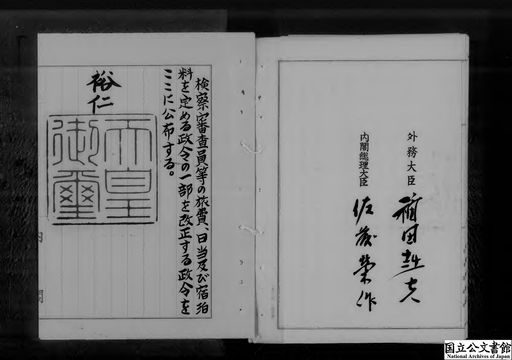 外務大臣
福田赳夫
内閣総理大臣
佐藤榮作
検察審査員等の旅費、日当及び宿泊
料を定める政令の一部を改正する政令を
ここに公布する。
裕仁
天皇
御璽
国立公文書館
National Archives of Japan